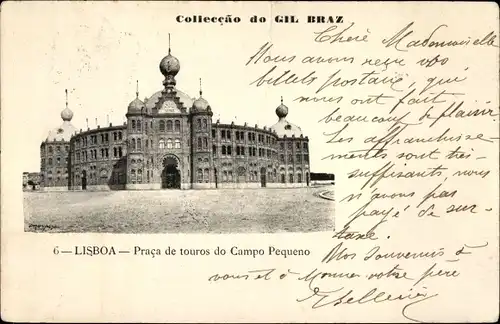 Collecção do GIL BRAZ
Chère Mademoiselle
Nous avons reçu vos
billets postaux, qui
nous ont fait
beaucoup de plaisir.
Les affranchisse-
ments sont très-
suffisants, nous
n'avons pas
payé de sur-
taxe.
Nos Souvenirs à
vous et à Monsieur votre père
6 — LISBOA — Praça de touros do Campo Pequeno